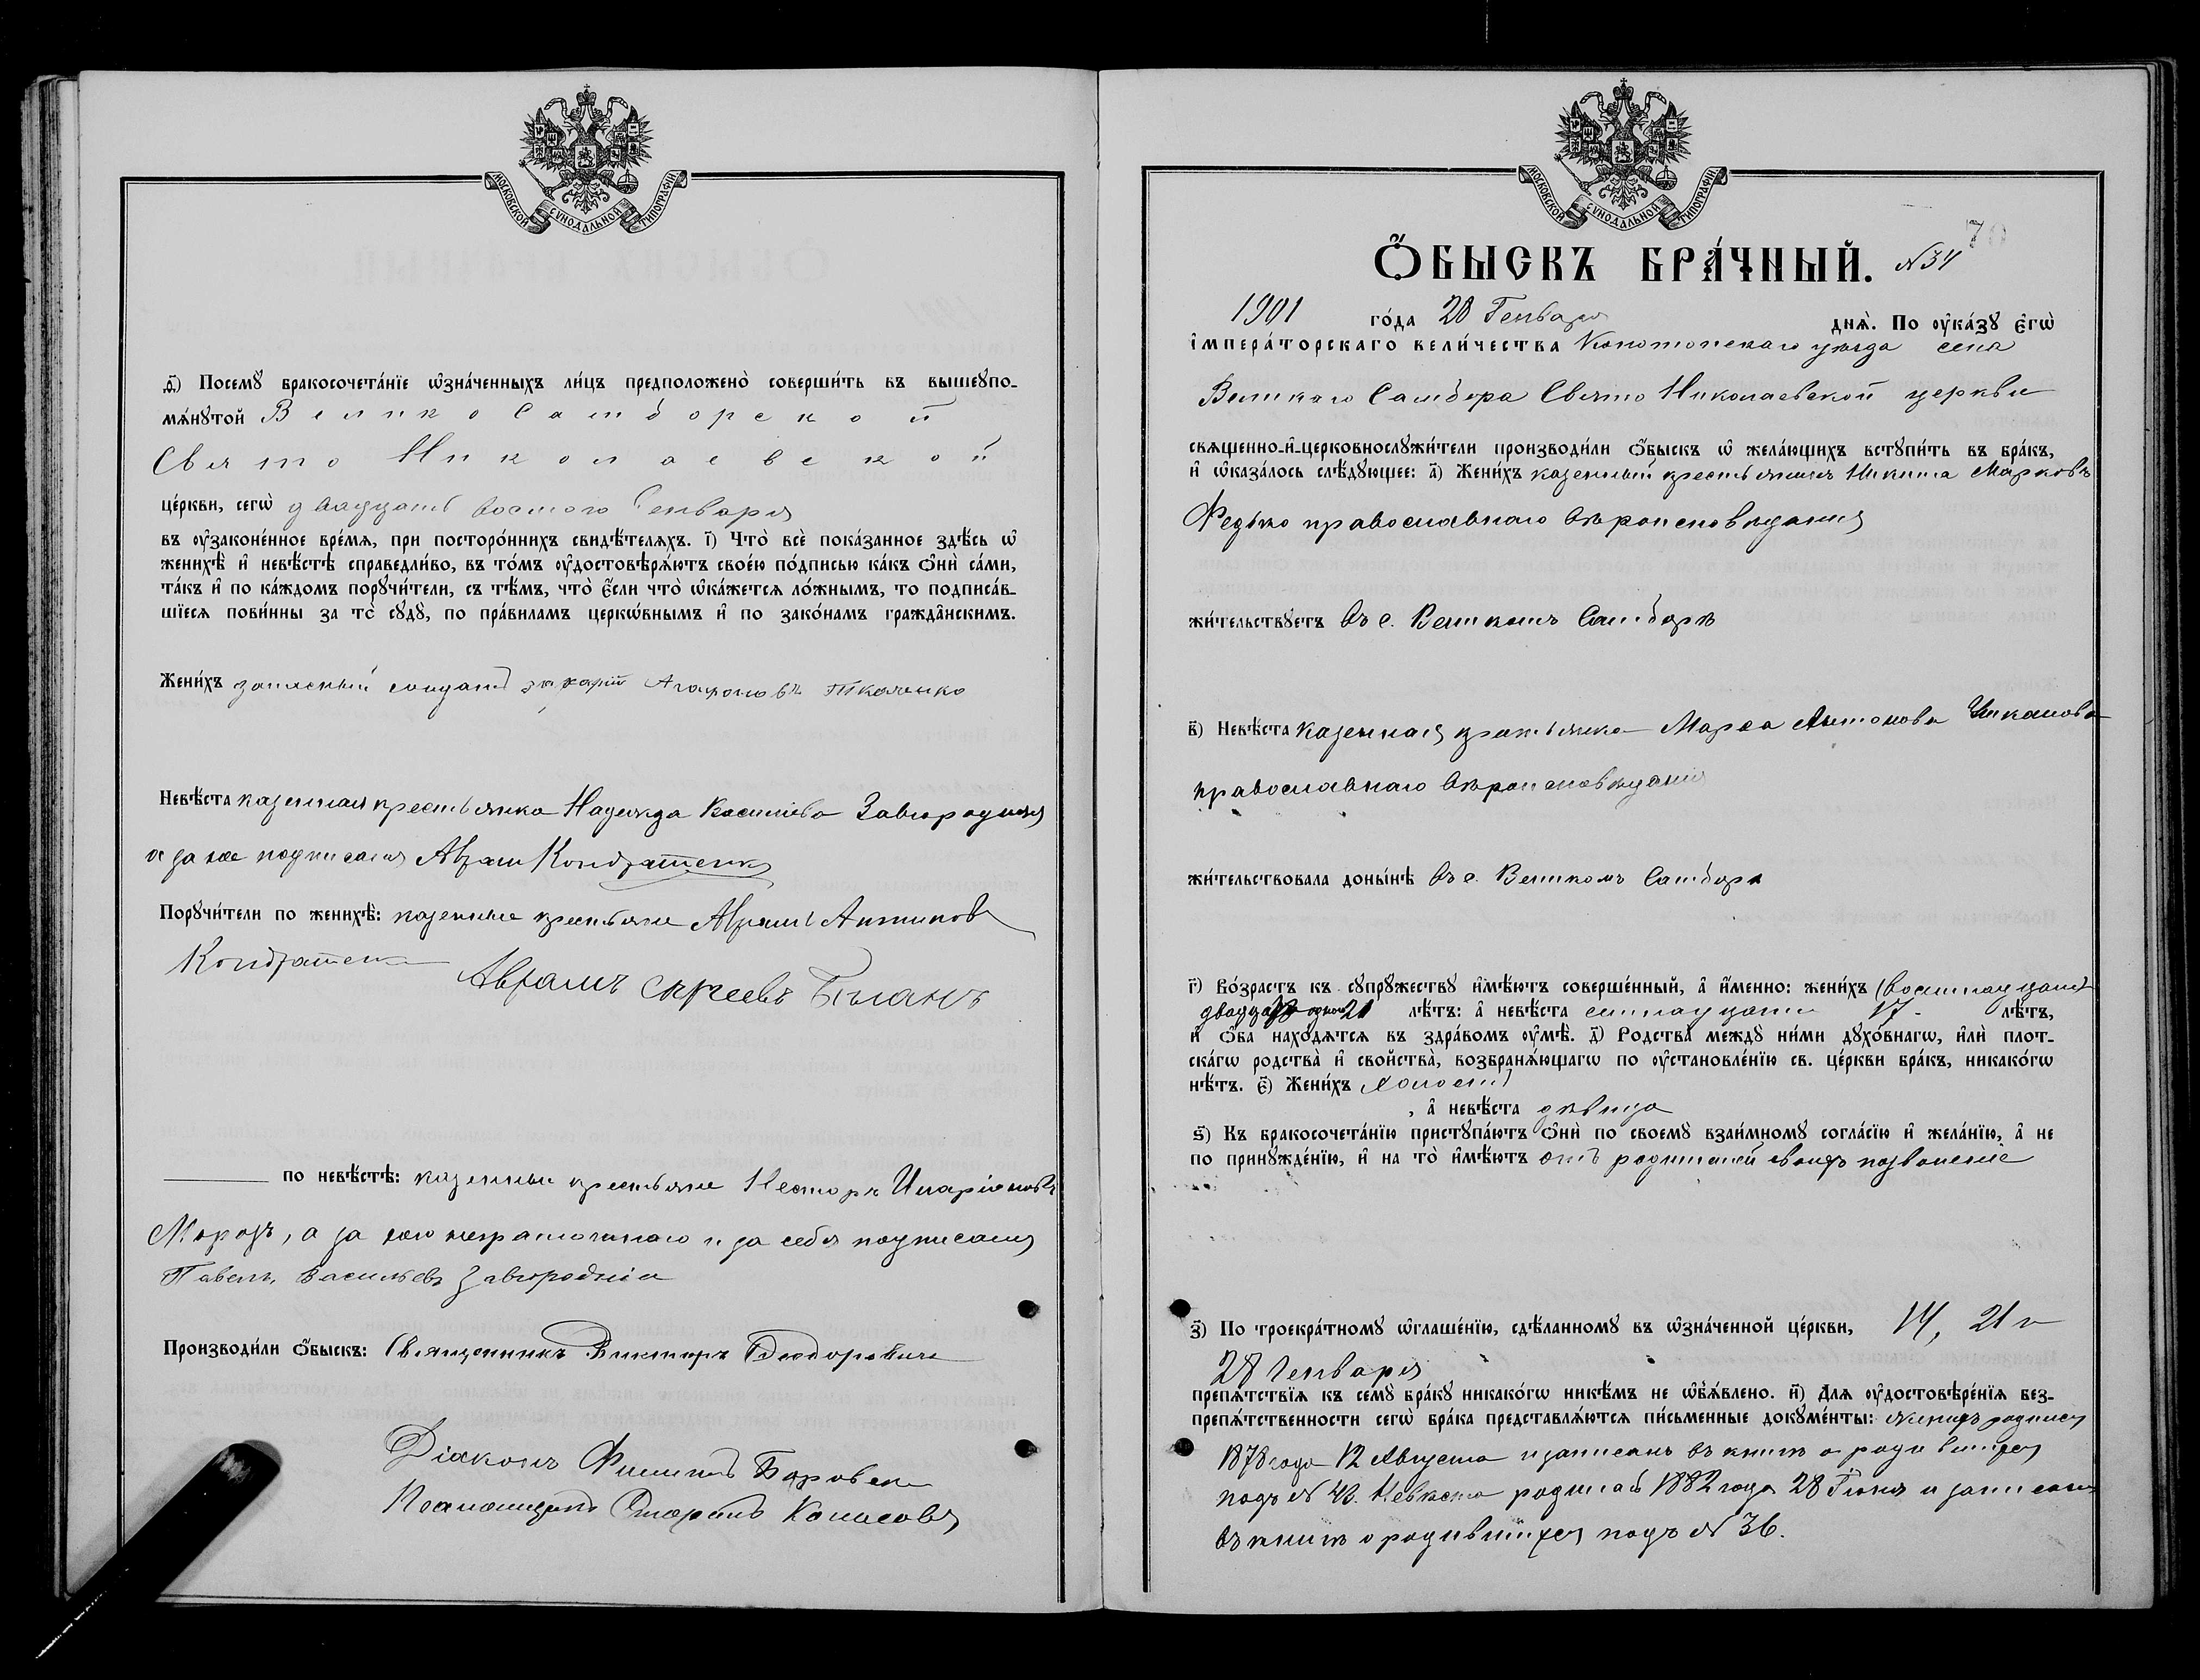 МОСКОВСКОЙ СѴНОДАЛЬНОЙ ТИПОГРАФІИ
д҃і) Посемꙋ̀ бракосочета́нїе ѡ҆зна́ченныхъ ли́цъ предположено̀ соверши́ть въ вышеꙋпо-
мѧ́нꙋтой Велико Самборской
Свято Николаевской
це́ркви, сегѡ̀ двадцать восьмого Генваря
въ ᲂу҆законе́нное вре́мѧ, при посторо́ннихъ свидѣ́телѧхъ. і҃) Что̀ всѐ пока́занное здѣ́сь ѡ҆
женихѣ̀ и҆ невѣ́стѣ справедли́во, въ то́мъ ᲂу҆достовѣрѧ́ютъ свое́ю по́дписью ка́къ ѻ҆нѝ са́ми,
та́къ и҆ по ка́ждомъ порꙋчи́тели, съ тѣ́мъ, что̀ є҆́сли что̀ ѡ҆ка́жетсѧ ло́жнымъ, то подписа́в-
шїесѧ пови́нны за то̀ сꙋдꙋ̀, по пра́виламъ церкѡ́внымъ и҆ по зако́намъ гражда́нскимъ.
Жени́хъ запасный солдатъ Захарій Агафоновъ Ткаченко
Невѣ́ста казенная крестьянка Надежда Васильева Завгородняя
а за нее подписался Аврам Кондратенко
Порꙋчи́тели по женихѣ̀: казенные крестьяне Аврамъ Антипов
Кондратенко Аврамъ Сергеевъ Бѣланъ
по невѣ́стѣ: казенные крестьяне Несторъ Иларіоновъ
Морозъ, а за него неграмотнаго и за себя подписался
Павелъ Васильевъ Завгородній
Производи́ли ѻ҆́быскъ: Священникъ Викторъ Ѳеодоровичъ
Діаконъ Филиппъ Боровик
Псаломщикъ
МОСКОВСКОЙ СѴНОДАЛЬНОЙ ТИПОГРАФІИ
70
Ѻ҆́БЫСКЪ БРА́ЧНЫЙ. №34
1901 го́да 28 Генваря днѧ̀. По ᲂу҆ка́зꙋ є҆гѡ̀
і҆мпера́торскаго вели́чества Конотопскаго уѣзда села
Великаго Самбора Свято Николаевской церкви
свѧщенно-и҆-церковнослꙋжи́тели производи́ли ѻ҆́быскъ ѡ҆ жела́ющихъ встꙋпи́ть въ бра́къ,
и҆ ѡ҆каза́лось слѣ́дꙋющее: а҃) Жени́хъ казенный крестьянинъ Никита Марковъ
Федько православнаго вѣроисповѣданія
жи́тельствꙋетъ въ с. Великомъ Самборѣ
в҃) Невѣ́ста казенная крестьянка Марѳа Антонова
православнаго вѣроисповѣданія
жи́тельствовала доны́нѣ въ с. Великомъ Самборѣ
г҃) Во́зрастъ къ сꙋпрꙋ́жествꙋ и҆мѣ́ютъ соверше́нный, а҆ и҆́менно: жени́хъ
двадцать одного 21 лѣ́тъ: а҆ невѣ́ста семнадцати 17 лѣ́тъ,
и҆ ѻ҆́ба нахо́дѧтсѧ въ здра́вомъ ᲂу҆мѣ̀. д҃) Родства̀ междꙋ ни́ми дꙋхо́внагѡ, и҆лѝ плот-
ска́гѡ родства̀ и҆ свойства̀, возбранѧ́ющагѡ по ᲂу҆становле́нїю св. це́ркви бра́къ, никако́гѡ
нѣ́тъ. є҃) Жени́хъ холостъ
, а҆ невѣ́ста дѣвица
ѕ҃) Къ бракосочета́нїю пристꙋпа́ютъ ѻ҆нѝ по своемꙋ̀ взаи́мномꙋ согла́сїю и҆ жела́нїю, а҆ не
по принꙋжде́нїю, и҆ на то̀ и҆мѣ́ютъ отъ родителей своихъ позволеніе
з҃) По троекра́тномꙋ ѡ҆глаше́нїю, сдѣ́ланномꙋ въ ѡ҆зна́ченной це́ркви, 14, 21 и
28 Генваря
препѧ́тствїѧ къ семꙋ̀ бра́кꙋ никако́гѡ никѣ́мъ не ѡ҆б̾ѧ́влено. и҃) Длѧ ᲂу҆достовѣре́нїѧ без-
препѧ́тственности сегѡ̀ бра́ка представлѧ́ютсѧ пи́сьменные докꙋме́нты: женихъ родился
года 12 Августа и записанъ въ книгѣ о родившихся
подъ № 43. Невѣста родилась 1882 года 28 Іюня и записана
въ книгѣ о родившихся подъ № 36.